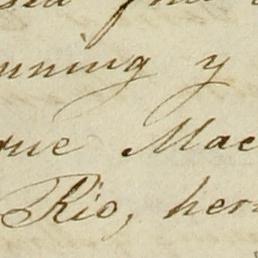 unning y
que Mac
Rio, her